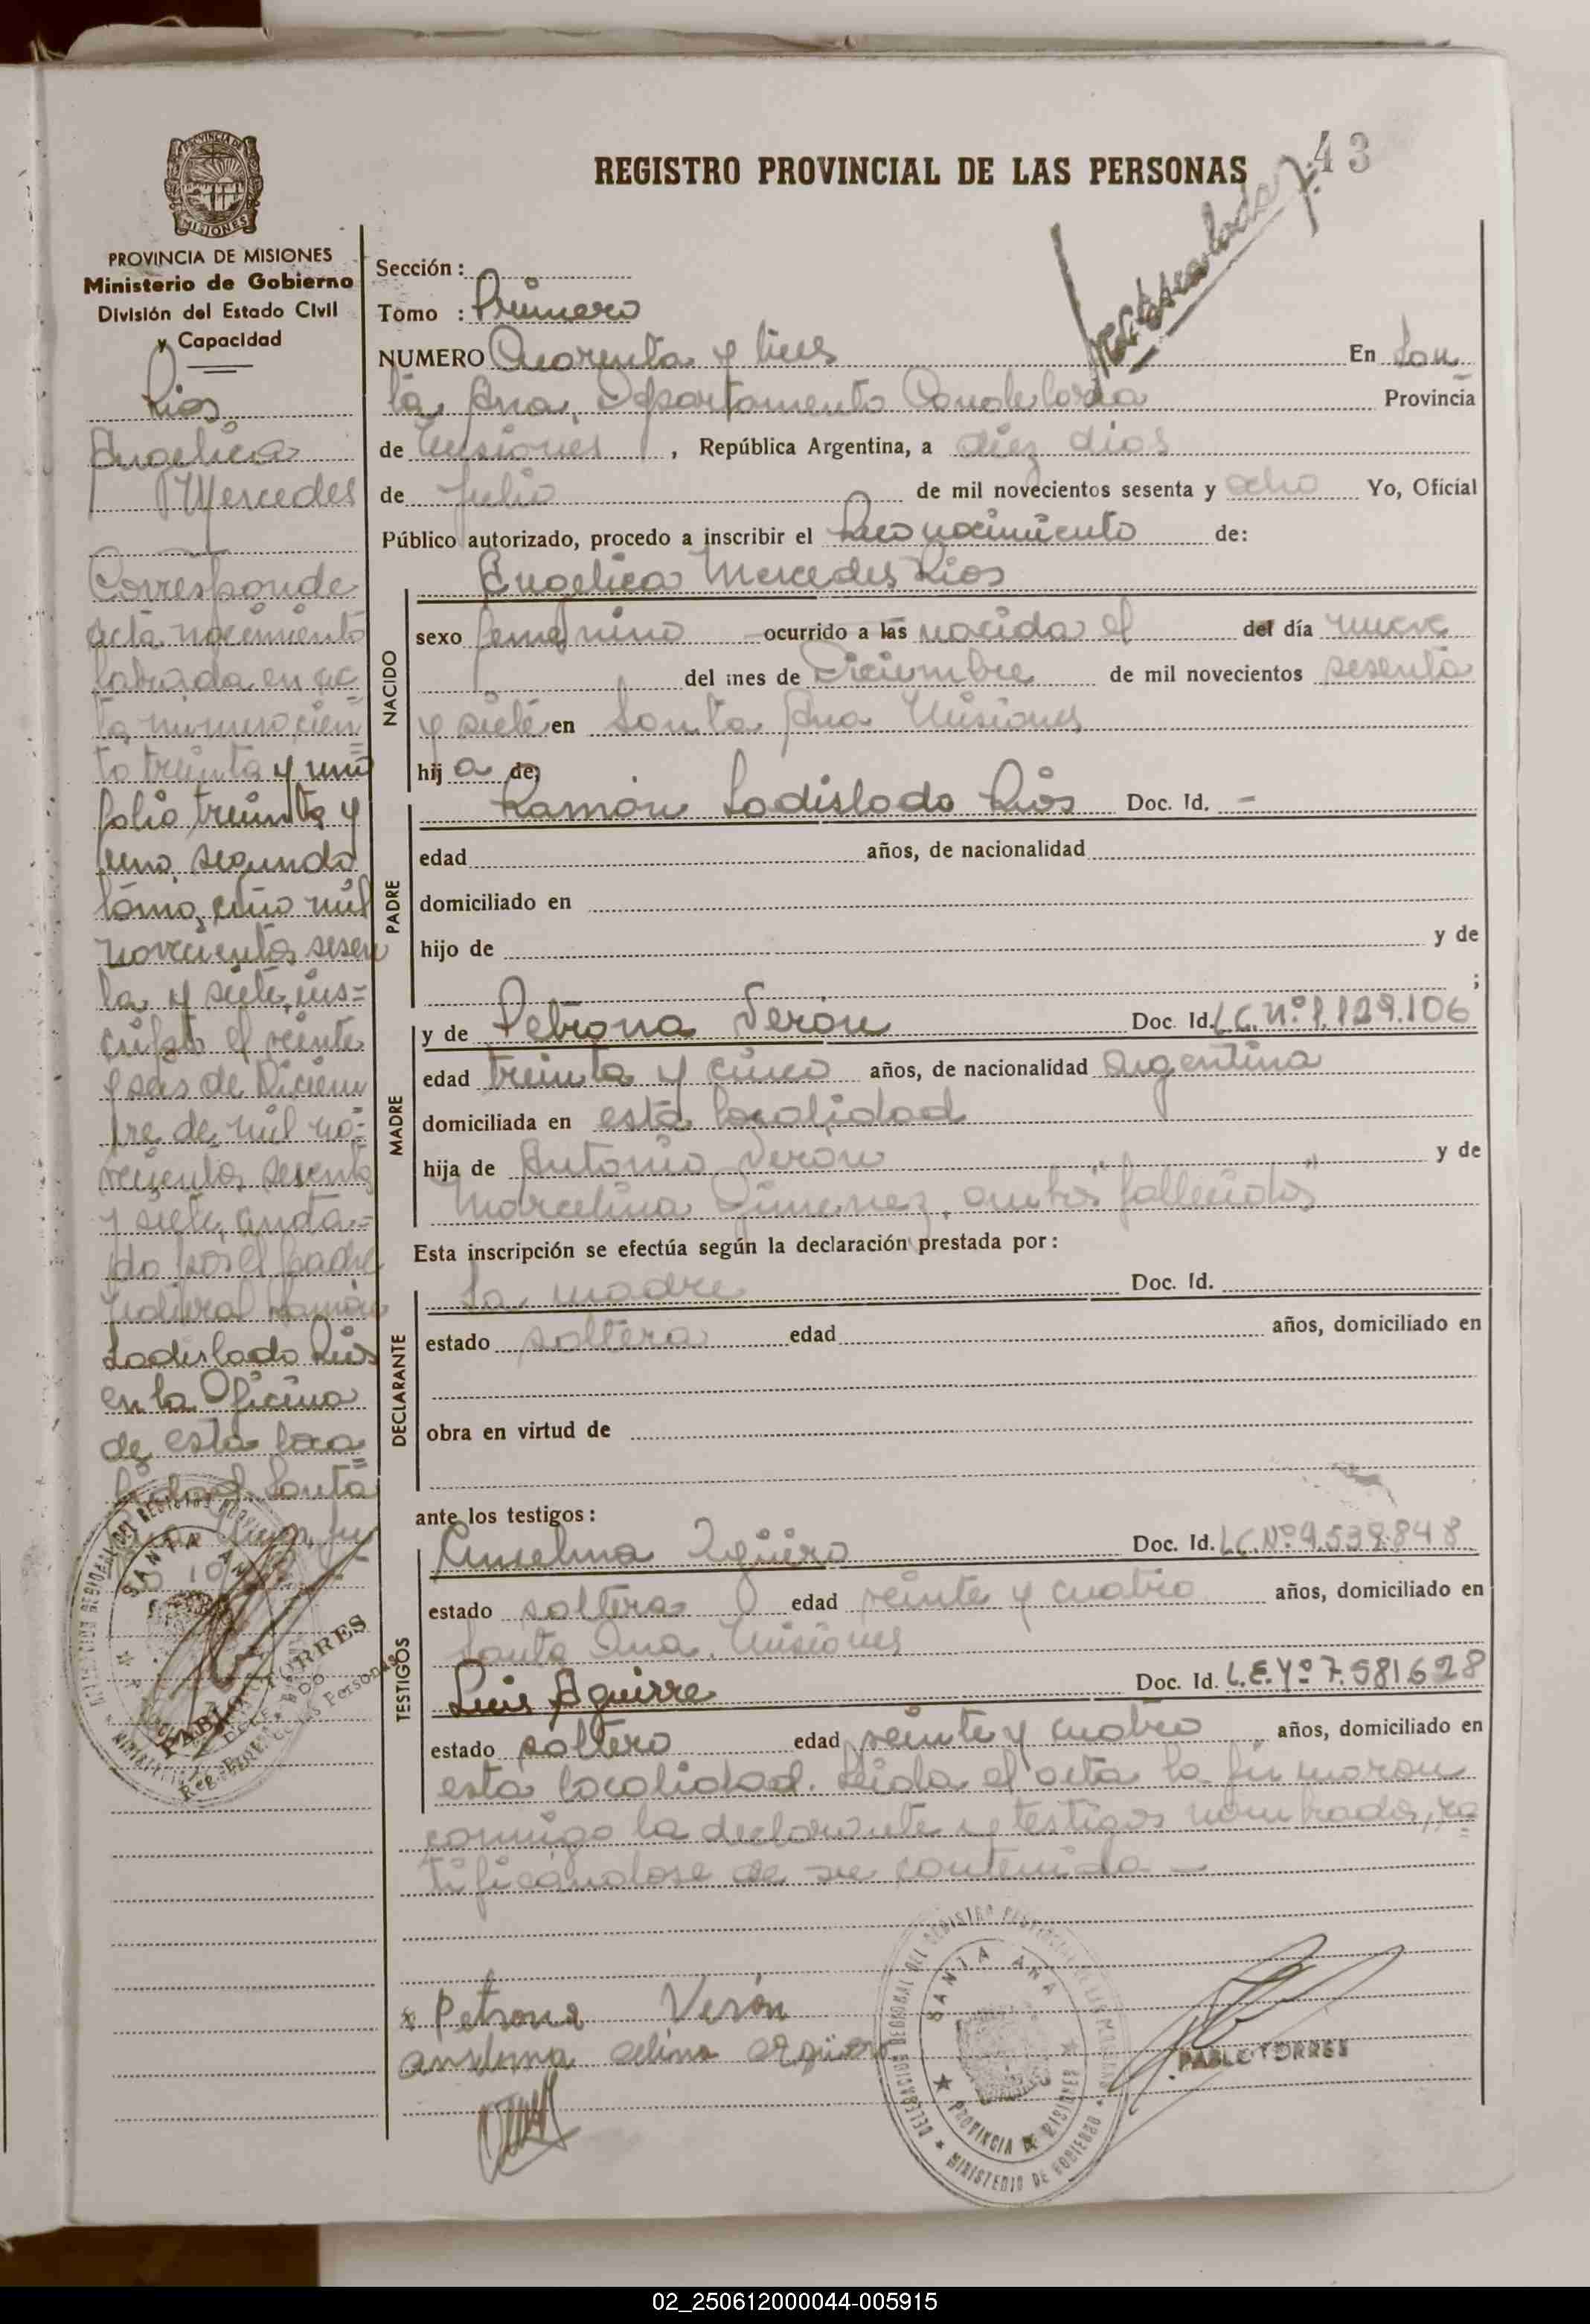 REGISTRO PROVINCIAL DE LAS PERSONAS
43
PROVINCIA DE MISIONES
MISIONES
PROVINCIA DE MISIONES
Ministerio de Gobierno
División del Estado Civil
y Capacidad
Rios
Angelica
Mercedes
Corresponde
acta nacimiento
labrada en ac
ta numero cien=
to treinta y uno
folio treinta y
uno, segundo
tomo, año mil
novecientos sesen
ta y siete, ins=
cripto el veinte
y seis de Diciem
bre de mil no=
vecientos sesenta
y siete, anota=
do por el padre
natural Ramón
Ladislado Rios
en la Oficina
de esta loca=
lidad Santa
Ana,
10
SANTA ANA
PABLO TORRES
Sección :
Tomo : Primero
NUMERO Cuarenta y tres En San
ta Ana, Departamento Candelaria Provincia
de Misiones, República Argentina, a diez dias
de Julio de mil novecientos sesenta y ocho Yo, Oficial
Público autorizado, procedo a inscribir el Reconocimiento de:
Angelica Mercedes Rios
NACIDO
sexo femenino ocurrido a las nacida el del día nueve
del mes de Diciembre de mil novecientos sesenta
y siete en Santa Ana Misiones
hij a de;
PADRE
Ramón Ladislado Rios Doc. Id. -
edad años, de nacionalidad
domiciliado en
hijo de y de
;
MADRE
y de Petrona Verón Doc. Id. L.C. Nº 1.129.106
edad treinta y cinco años, de nacionalidad argentina
domiciliada en esta localidad
hija de Antonio Verón y de
Marcelina Gimenez, ambos "fallecidos"
Esta inscripción se efectúa según la declaración prestada por:
DECLARANTE
La madre Doc. Id.
estado soltera edad años, domiciliado en
obra en virtud de
ante los testigos:
TESTIGOS
Anselma Doc. Id. L.C. Nº 4.539.848
estado soltera edad veinte y cuatro años, domiciliado en
Santa Ana, Misiones
Luis Aguirre Doc. Id. L.E. Nº 7.581628
estado soltero edad veinte y cuatro años, domiciliado en
esta localidad. Leida el acta la firmaron
conmigo la declarante y testigos nombrados, ra=
tificándose de su contenido -
Petrona Verón
anselma celina arguero
DELEGACION REGIONAL DEL REGISTRO PROVINCIAL DE LAS PERSONAS
SANTA ANA
PROVINCIA DE MISIONES
MINISTERIO DE GOBIERNO
PABLO TORRES
02_250612000044-005915